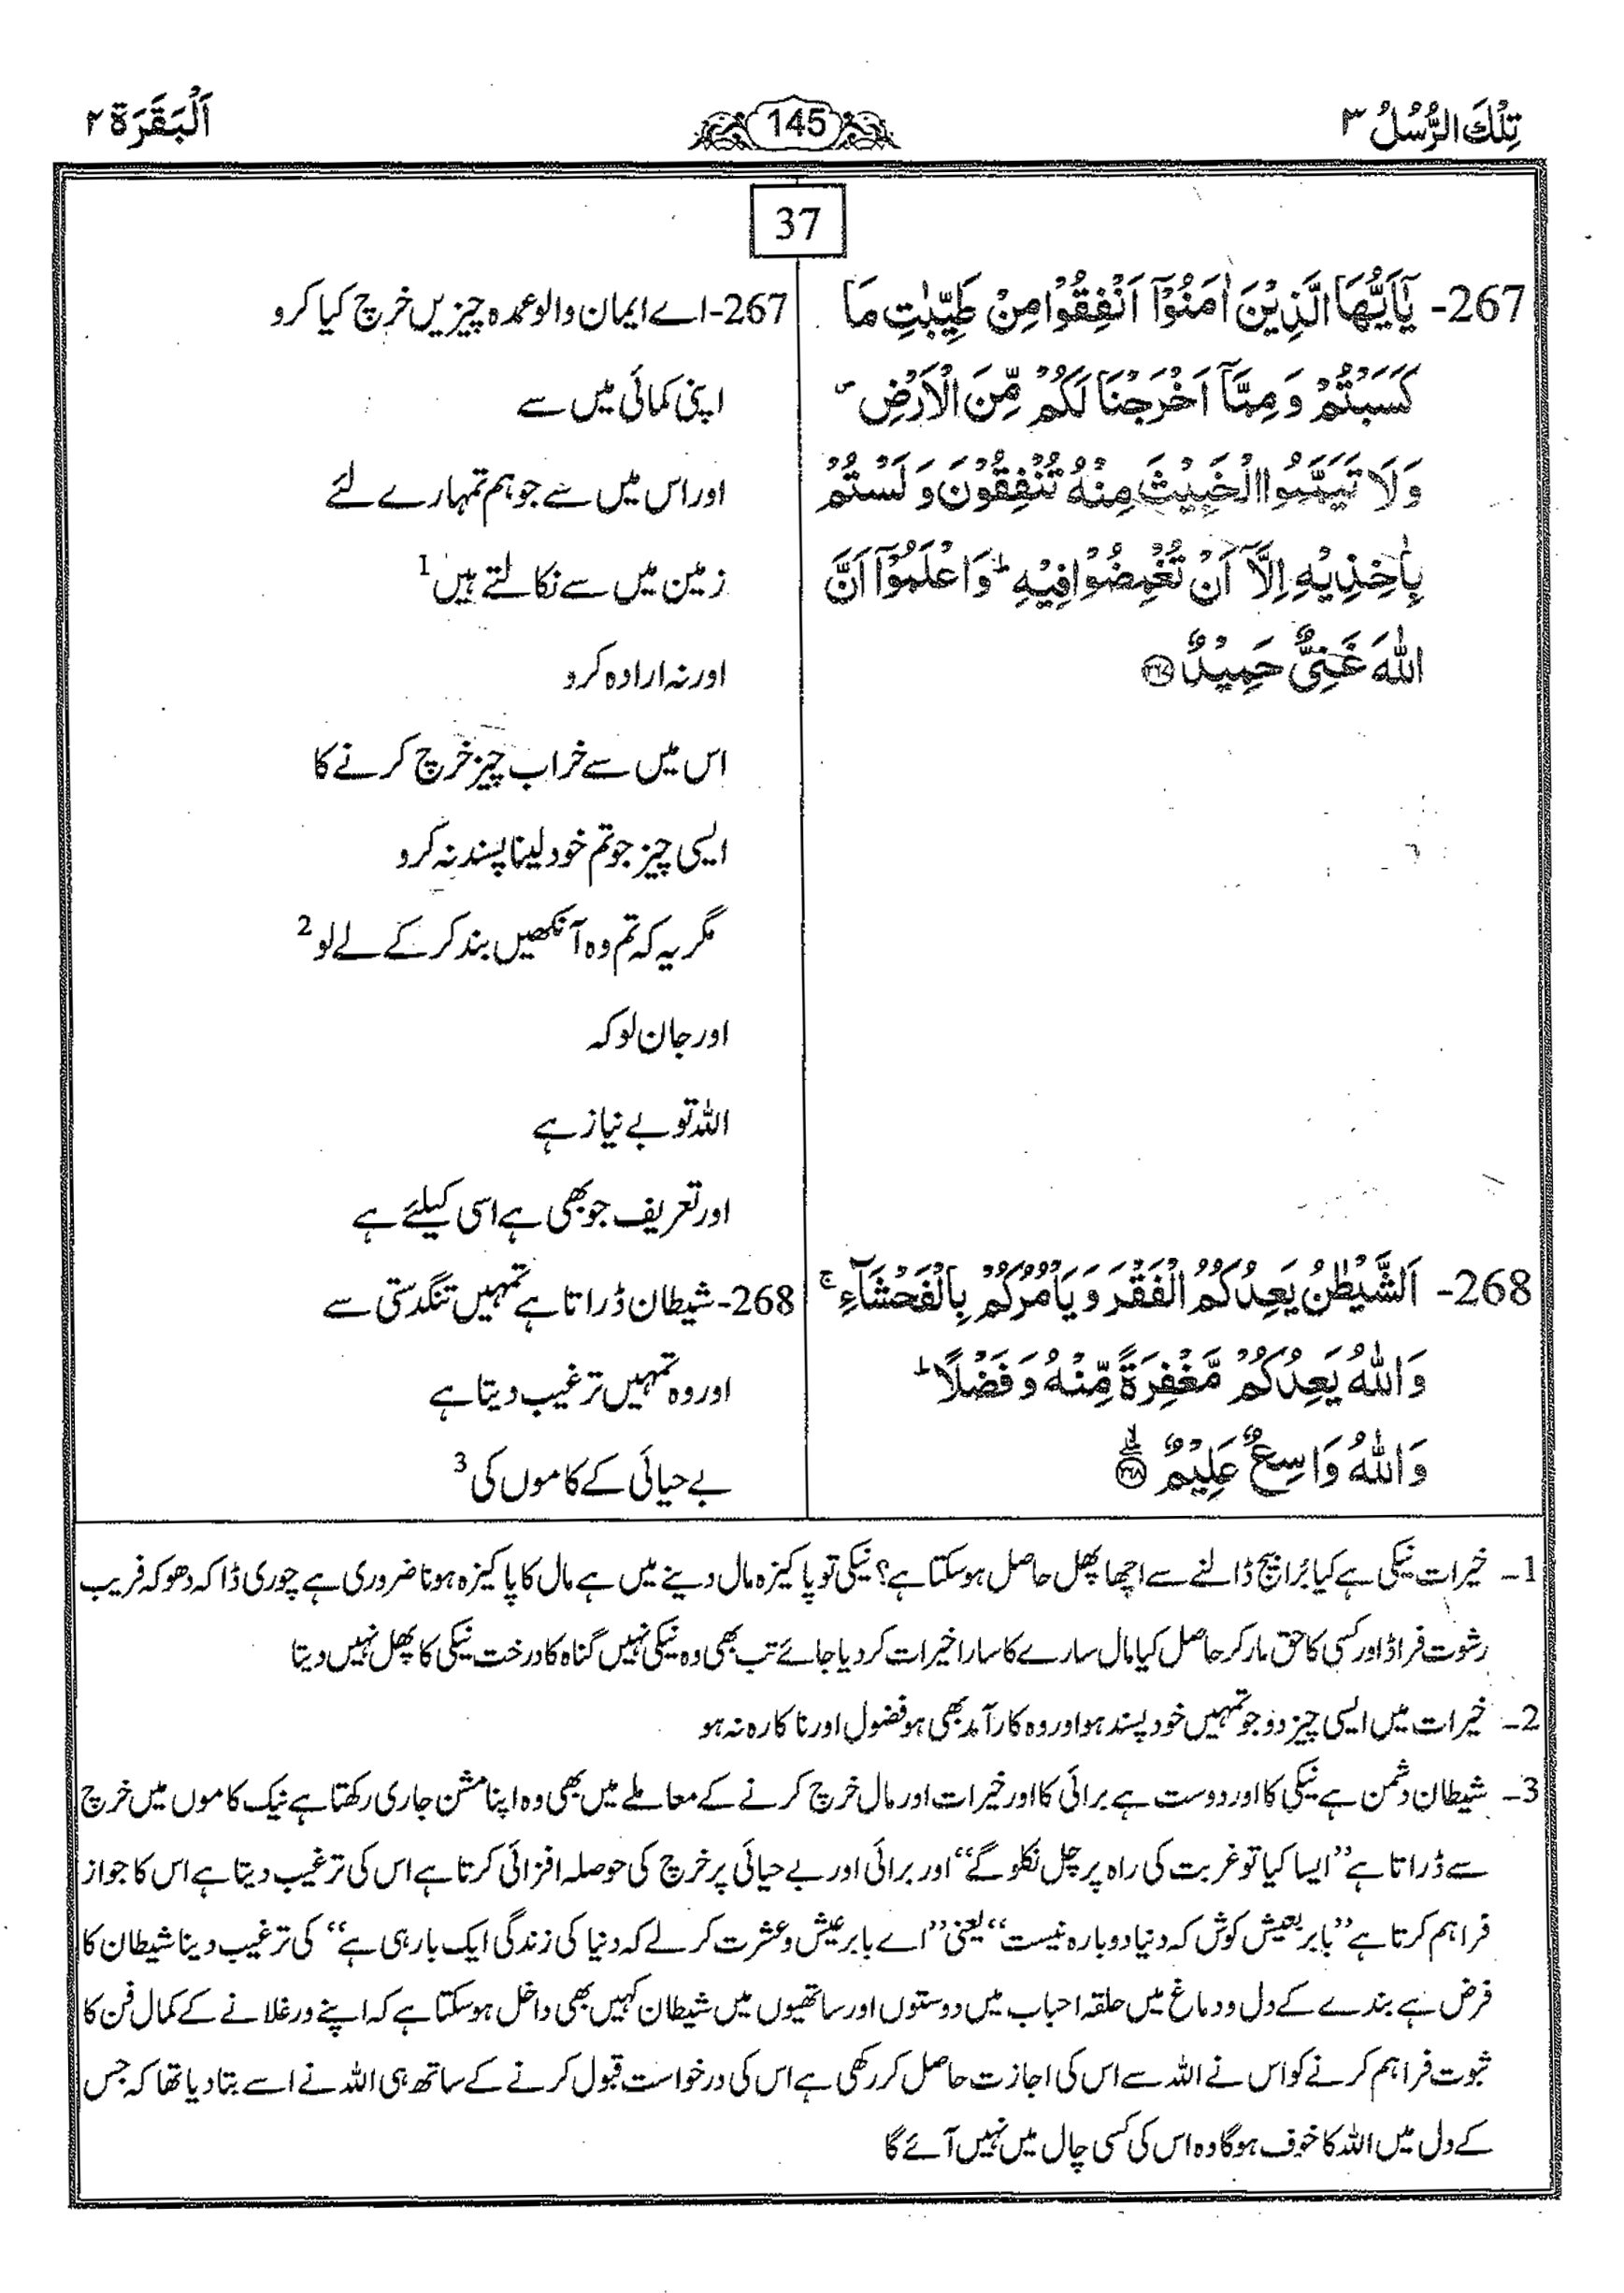 تِلْكَ الرُّسُلُ ۳
145
اَلْبَقَرَة ۲
37
267- يٰٓاَيُّهَا الَّذِيْنَ اٰمَنُوْٓا اَنْفِقُوْا مِنْ طَيِّبٰتِ مَا
كَسَبْتُمْ وَ مِمَّآ اَخْرَجْنَا لَكُمْ مِّنَ الْاَرْضِ ۪
وَلَا تَيَمَّمُوا الْخَبِيْثَ مِنْهُ تُنْفِقُوْنَ وَ لَسْتُمْ
بِاٰخِذِيْهِ اِلَّآ اَنْ تُغْمِضُوْا فِيْهِ ؕ وَاعْلَمُوْٓا اَنَّ
اللّٰهَ غَنِىٌّ حَمِيْدٌ ۝۲۶۷
268- اَلشَّيْطٰنُ يَعِدُكُمُ الْفَقْرَ وَ يَاْمُرُكُمْ بِالْفَحْشَآءِ ۚ
وَاللّٰهُ يَعِدُكُمْ مَّغْفِرَةً مِّنْهُ وَ فَضْلًا ؕ
وَاللّٰهُ وَاسِعٌ عَلِيْمٌ ۝۲۶۸
267-اے ایمان والو عمدہ چیزیں خرچ کیا کرو
اپنی کمائی میں سے
اور اس میں سے جو ہم تمہارے لئے
زمین میں سے نکالتے ہیں 1
اور نہ ارادہ کرو
اس میں سے خراب چیز خرچ کرنے کا
ایسی چیز جو تم خود لینا پسند نہ کرو
مگر یہ کہ تم وہ آنکھیں بند کر کے لے لو 2
اور جان لو کہ
اللہ تو بے نیاز ہے
اور تعریف جو بھی ہے اسی کیلئے ہے
268-شیطان ڈراتا ہے تمہیں تنگدستی سے
اور وہ تمہیں ترغیب دیتا ہے
بے حیائی کے کاموں کی 3
1۔ خیرات نیکی ہے کیا بُرا بیج ڈالنے سے اچھا پھل حاصل ہو سکتا ہے؟ نیکی تو پاکیزہ مال دینے میں ہے مال کا پاکیزہ ہونا ضروری ہے چوری ڈاکہ دھوکہ فریب
رشوت فراڈ اور کسی کا حق مار کر حاصل کیا مال سارے کا سارا خیرات کر دیا جائے تب بھی وہ نیکی نہیں گناہ کا درخت نیکی کا پھل نہیں دیتا
2۔ خیرات میں ایسی چیز دو جو تمہیں خود پسند ہو اور وہ کار آمد بھی ہو فضول اور ناکارہ نہ ہو
3۔ شیطان دشمن ہے نیکی کا اور دوست ہے برائی کا اور خیرات اور مال خرچ کرنے کے معاملے میں بھی وہ اپنا مشن جاری رکھتا ہے نیک کاموں میں خرچ
سے ڈراتا ہے ”ایسا کیا تو غربت کی راہ پر چل نکلو گے“ اور برائی اور بے حیائی پر خرچ کی حوصلہ افزائی کرتا ہے اس کی ترغیب دیتا ہے اس کا جواز
فراہم کرتا ہے ”بابر بعیش کوش کہ دنیا دوبارہ نیست“ یعنی ”اے بابر عیش و عشرت کر لے کہ دنیا کی زندگی ایک بار ہی ہے“ کی ترغیب دینا شیطان کا
فرض ہے بندے کے دل و دماغ میں حلقہ احباب میں دوستوں اور ساتھیوں میں شیطان کہیں بھی داخل ہو سکتا ہے کہ اپنے ورغلانے کے کمال فن کا
ثبوت فراہم کرنے کو اس نے اللہ سے اس کی اجازت حاصل کر رکھی ہے اس کی درخواست قبول کرنے کے ساتھ ہی اللہ نے اسے بتا دیا تھا کہ جس
کے دل میں اللہ کا خوف ہو گا وہ اس کی کسی چال میں نہیں آئے گا